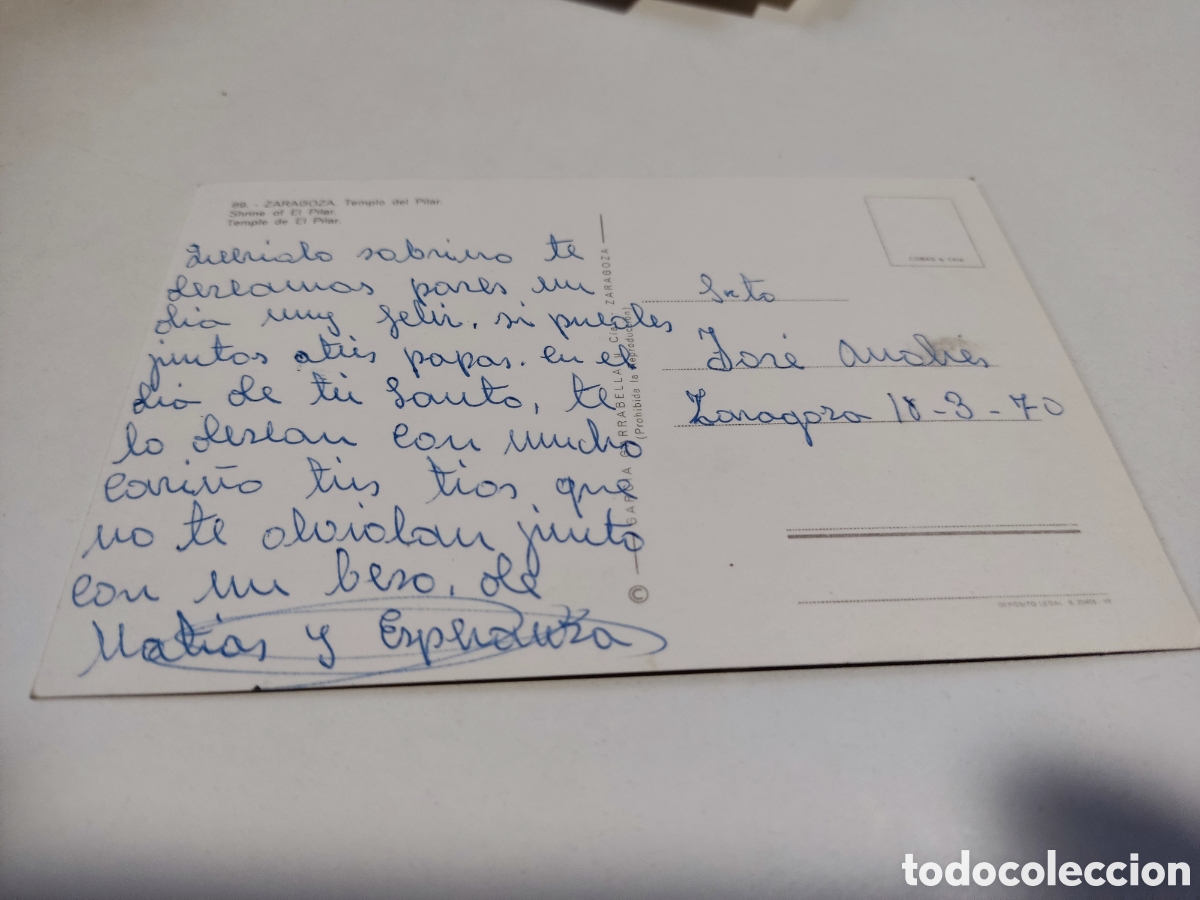 88. - ZARAGOZA. Templo del Pilar.
Shrine of El Pilar.
Temple de El Pilar.
Querido sobrino te
deseamos pases un
dia muy feliz. si puedes
juntos a tús papas. en el
dia de tú Santo, te
lo desean con mucho
cariño tús tios que
no te olvidan junto
con un beso. de
Matias y Esperanza
© GARCIA GARRABELLA y Cía. - ZARAGOZA
(Prohibida la Reproducción)
Srto
José Andrés
Zaragoza 18-3-70
DEPÓSITO LEGAL B.
todocoleccion